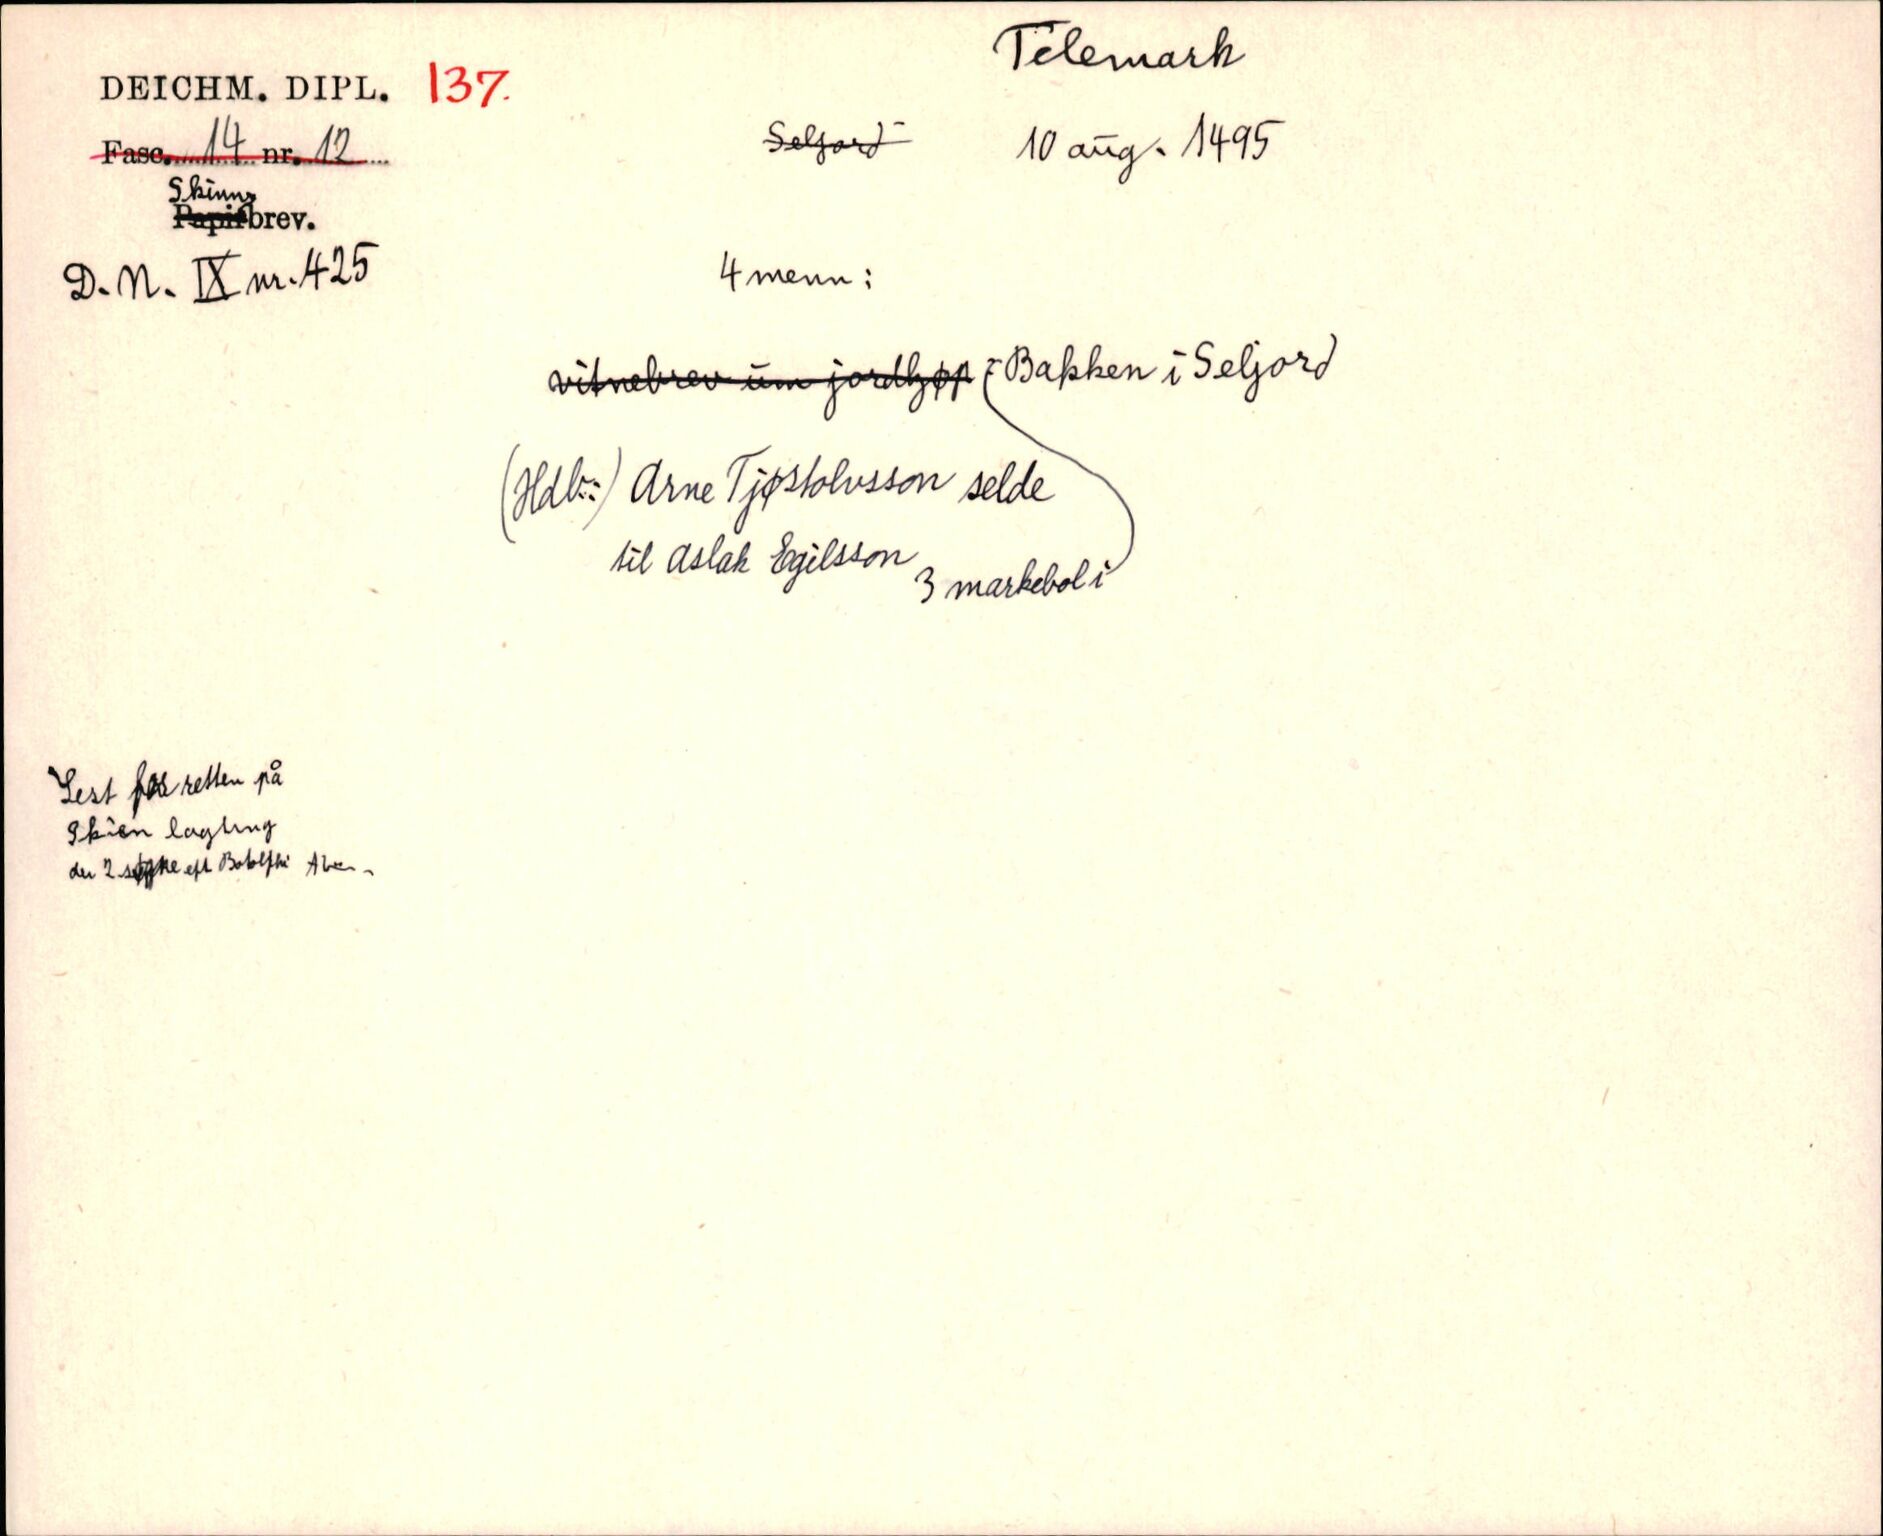 Telemark
DEICHM. DIPL. 137.
Fasc. 14 nr. 12
Seljord
10 aug. 1495
Skinn
Papirbrev.
D. N. IX nr. 425
4 menn:
vitnebrev um jordkjøp : Bakken i Seljord
(Hdl.:) Arne Tjøstolvsson selde
til Aslak Egilsson
3 markebol i
Lest for retten på
Skien lagting
den 2 søgne eft Botolphi